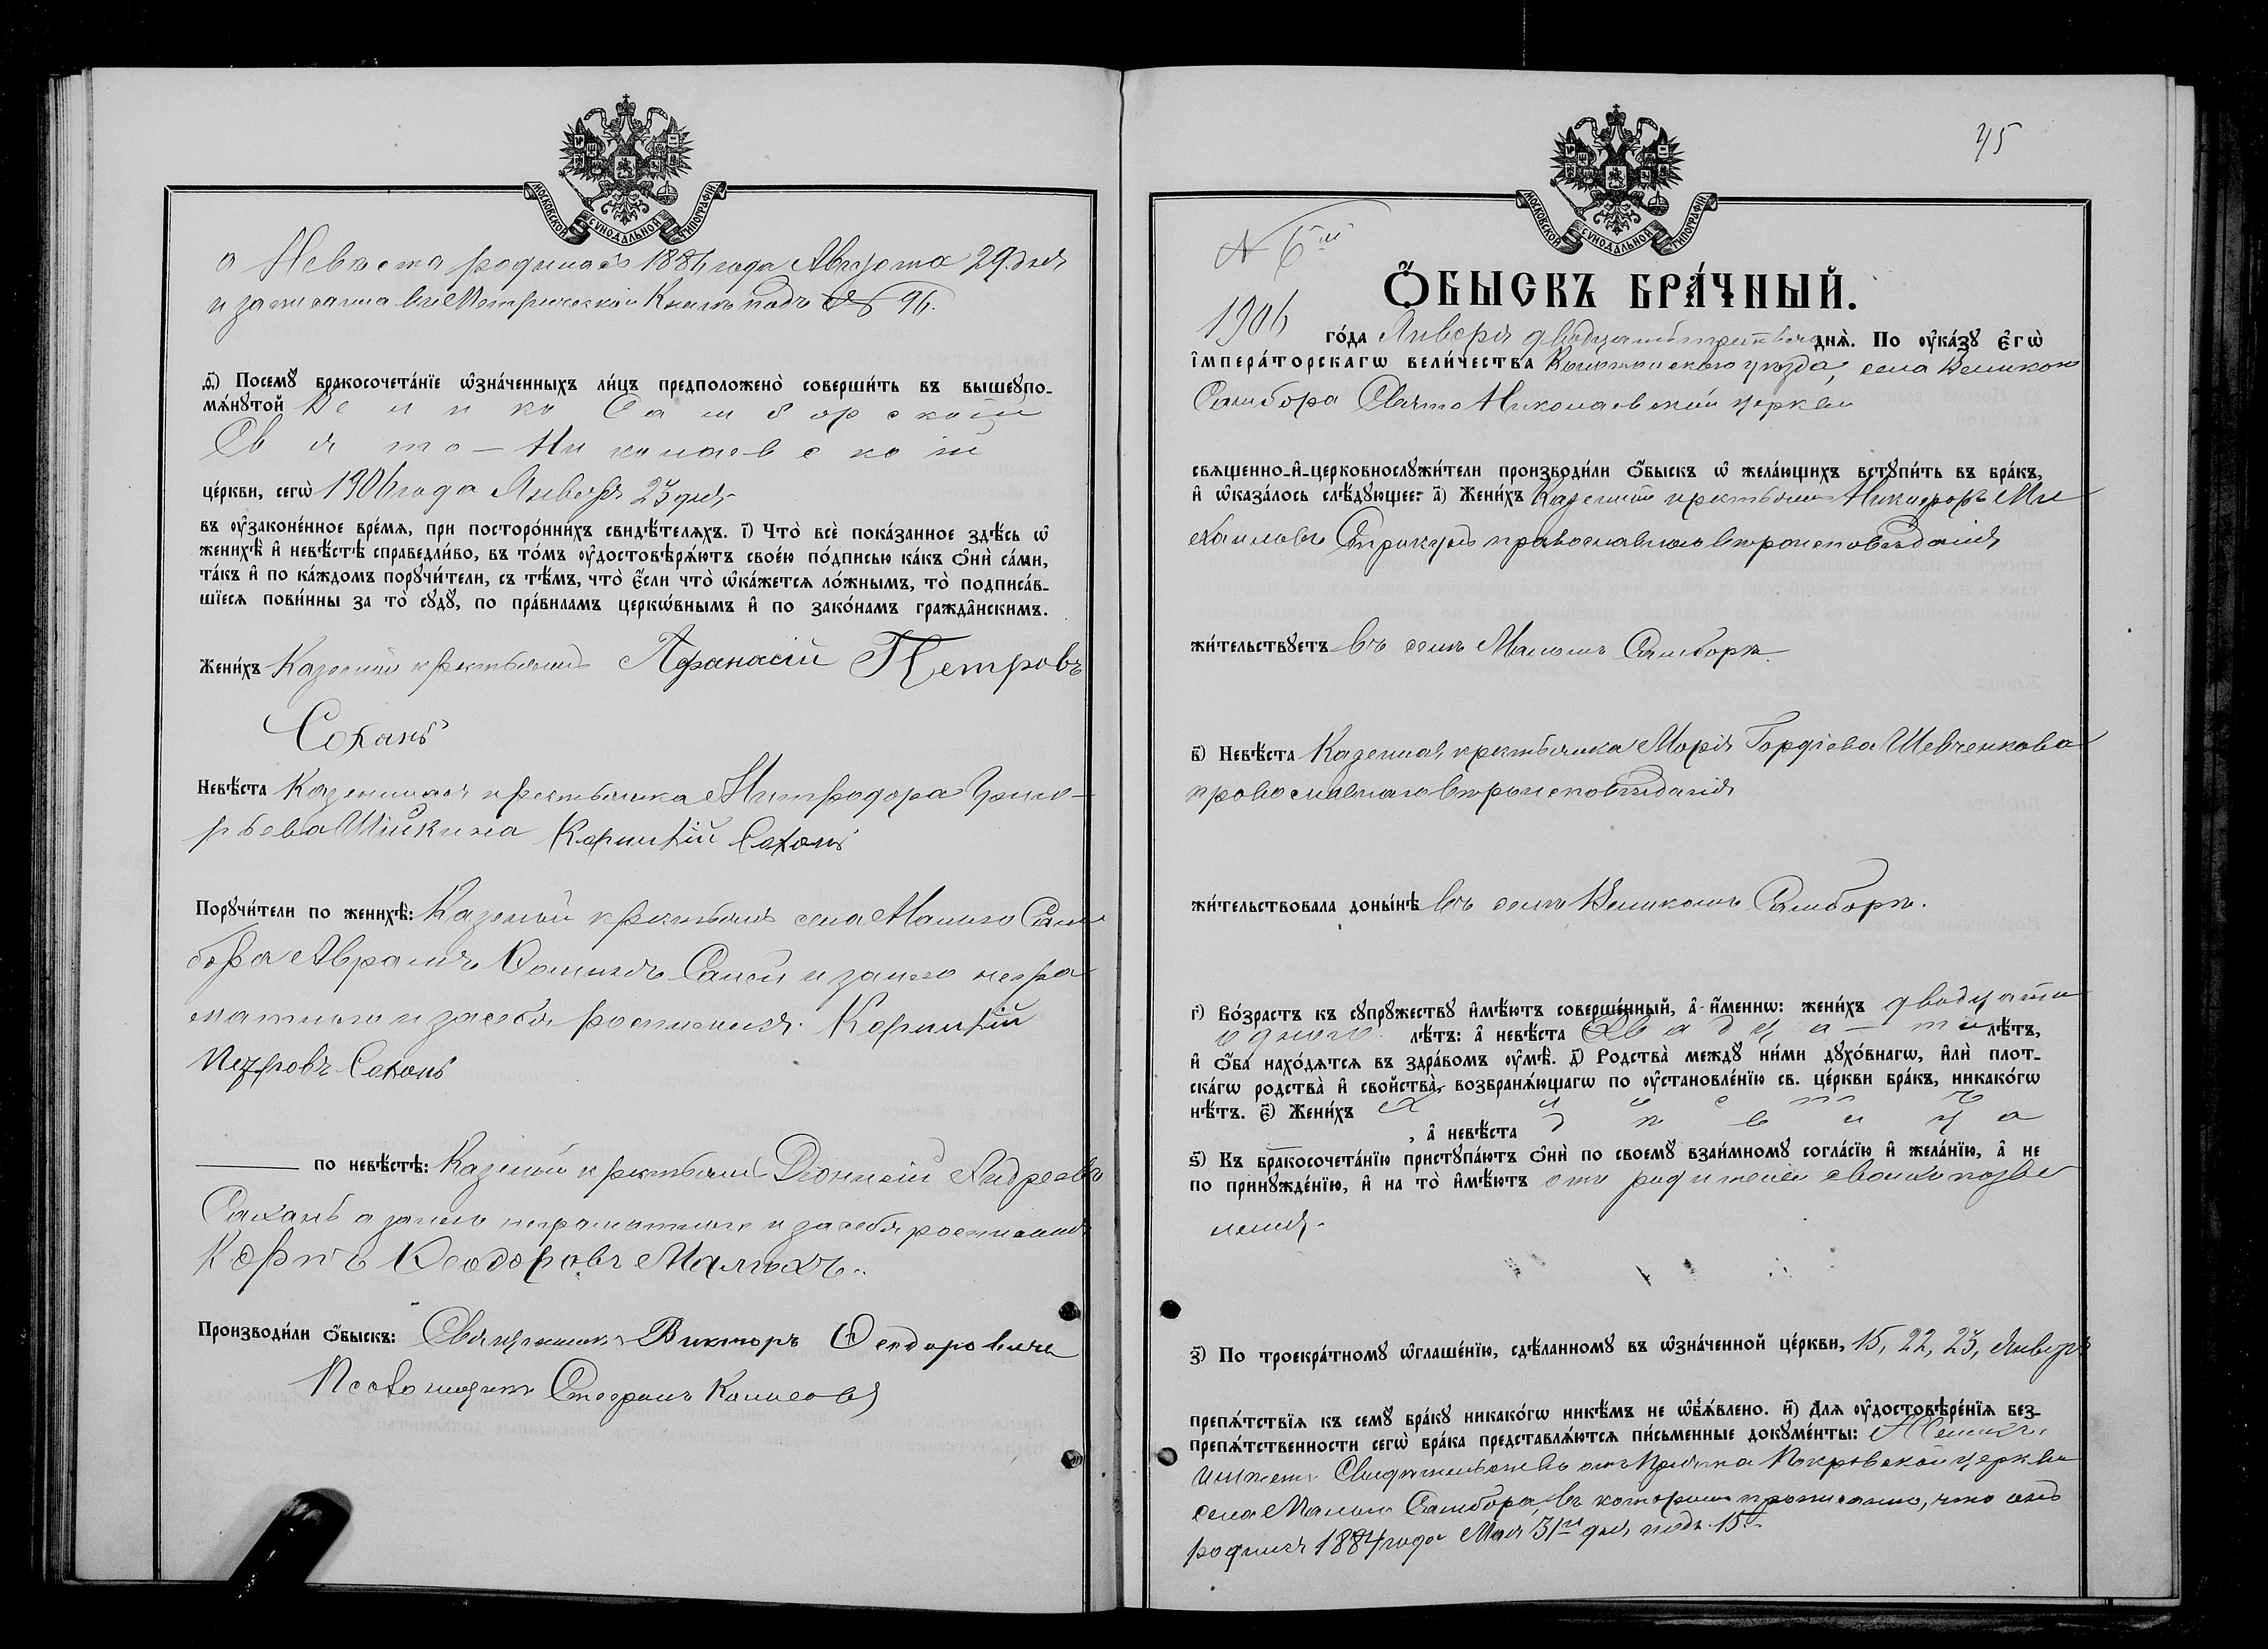 МОСКОВСКОЙ СѴНОДАЛЬНОЙ ТИПОГРАФІИ
а Невѣста родилась 1886 года Августа 29 дня
и записана въ Метрической Книгѣ подъ № 96.
д҃і) Посемꙋ бракосочета́нїе ѡ҆зна́ченныхъ ли́цъ предположено̀ соверши́ть въ вышеꙋпо-
мѧ́нꙋтой Велико Самборской
Свято-Николаевской
це́ркви, сегѡ̀ 1906 года Января 23 дня
въ ᲂу҆законе́нное вре́мѧ, при посторо́ннихъ свидѣ́телѧхъ. і҃) Что̀ всѐ пока́занное здѣ́сь ѡ҆
женихѣ̀ и҆ невѣ́стѣ справедли́во, въ то́мъ ᲂу҆достовѣрѧ́ютъ свое́ю по́дписью ка́къ ѻ҆нѝ са́ми,
та́къ и҆ по ка́ждомъ порꙋчи́тели, съ тѣ́мъ, что̀ є҆́сли что̀ ѡ҆ка́жетсѧ ло́жнымъ, то̀ подписа́в-
шїесѧ пови́нны за то̀ сꙋдꙋ̀, по пра́виламъ церкѡ́внымъ и҆ по зако́намъ гражда̂нскимъ.
Жени́хъ Казенный крестьянинъ Афанасій Петровъ
Сохань
Невѣ́ста Казенная крестьянка Митродора Григо-
рьева Шийкина Корнилій Сохань
Порꙋчи́тели по женихѣ̀: Казеный крестьянинъ села Малого Сам
бора Аврамъ
а за него негра
мотного и за себя росписался. Корнилій
Петровъ Сохань
по невѣ́стѣ: Казеный крестьянинъ Діонисій Андреевъ
Сахань а за него неграмотного и за себя росписался
Карпъ Феодоровъ
Производи́ли ѻ҆́быскъ: Священникъ Викторъ Феодоровичъ
Псаломщикъ Стефанъ
45
МОСКОВСКОЙ СѴНОДАЛЬНОЙ ТИПОГРАФІИ
№ 6й
Ѻ҆́БЫСКЪ БРА́ЧНЫЙ.
1906 го́да Января двадцать третьяго днѧ̀. По ᲂу҆ка́зꙋ є҆гѡ̀
і҆мпера́торскагѡ вели́чества Конотопскаго уѣзда, села Великого
Самбора Свято Николаевской церкви
свѧще́нно-и҆-церковнослꙋжи́тели производи́ли ѻ҆́быскъ ѡ҆ жела́ющихъ встꙋпи́ть въ бра́къ,
и҆ ѡ҆каза́лось слѣ́дꙋющее: а҃) Жени́хъ Казенный крестьянинъ Никифоръ Ми
хаиловъ православного вѣроисповѣданія
жи́тельствꙋетъ въ селѣ Маломъ Самборѣ.
в҃) Невѣ́ста Казенная крестьянка Марія Гордіева Шевченкова
православного вѣроисповѣданія
жи́тельствовала доны́нѣ въ селѣ Великомъ Самборѣ.
г҃) Во́зрастъ къ сꙋпрꙋ́жествꙋ и҆мѣ́ютъ соверше́нный, а҆ и҆́менно: жени́хъ двадцати
одного лѣ́тъ: а҆ невѣ́ста двадцати лѣ́тъ,
и҆ ѻ҆́ба нахо́дѧтсѧ въ здра́вомъ ᲂу҆мѣ̀. д҃) Родства̀ междꙋ̀ ни́ми дꙋхо́внагѡ, и҆лѝ плот-
ска́гѡ родства̀ и҆ свойства̀, возбранѧ́ющагѡ по ᲂу҆становле́нїю св. це́ркви бра́къ, никако́гѡ
нѣ́тъ. є҃) Жени́хъ холостъ
, а҆ невѣ́ста дѣвица
ѕ҃) Къ бракосочета́нїю пристꙋпа́ютъ ѻ҆нѝ по своемꙋ̀ взаи́мномꙋ согла́сїю и҆ жела́нїю, а҆ не
по принꙋжде́нїю, и҆ на то̀ и҆мѣ́ютъ отъ родителей своихъ позво
ленія.
з҃) По троекра́тномꙋ ѡ҆глаше́нїю, сдѣ́ланномꙋ въ ѡ҆зна́ченной це́ркви, 15, 22, 23, Января
препѧ́тствїѧ къ семꙋ̀ бра́кꙋ никако́гѡ никѣ́мъ не ѡ҆б̾ѧ́влено. и҃) Длѧ ᲂу҆достовѣре́нїѧ без-
препѧ́тственности сегѡ̀ бра́ка представлѧ́ютсѧ пи́сьменные докꙋме́нты: Женихъ
имѣетъ Свидѣтельство отъ Причта Покровской церкви
села Малого Самбора, въ которомъ прописано, что онъ
родился 1884 года Мая 31го дня подъ 15.